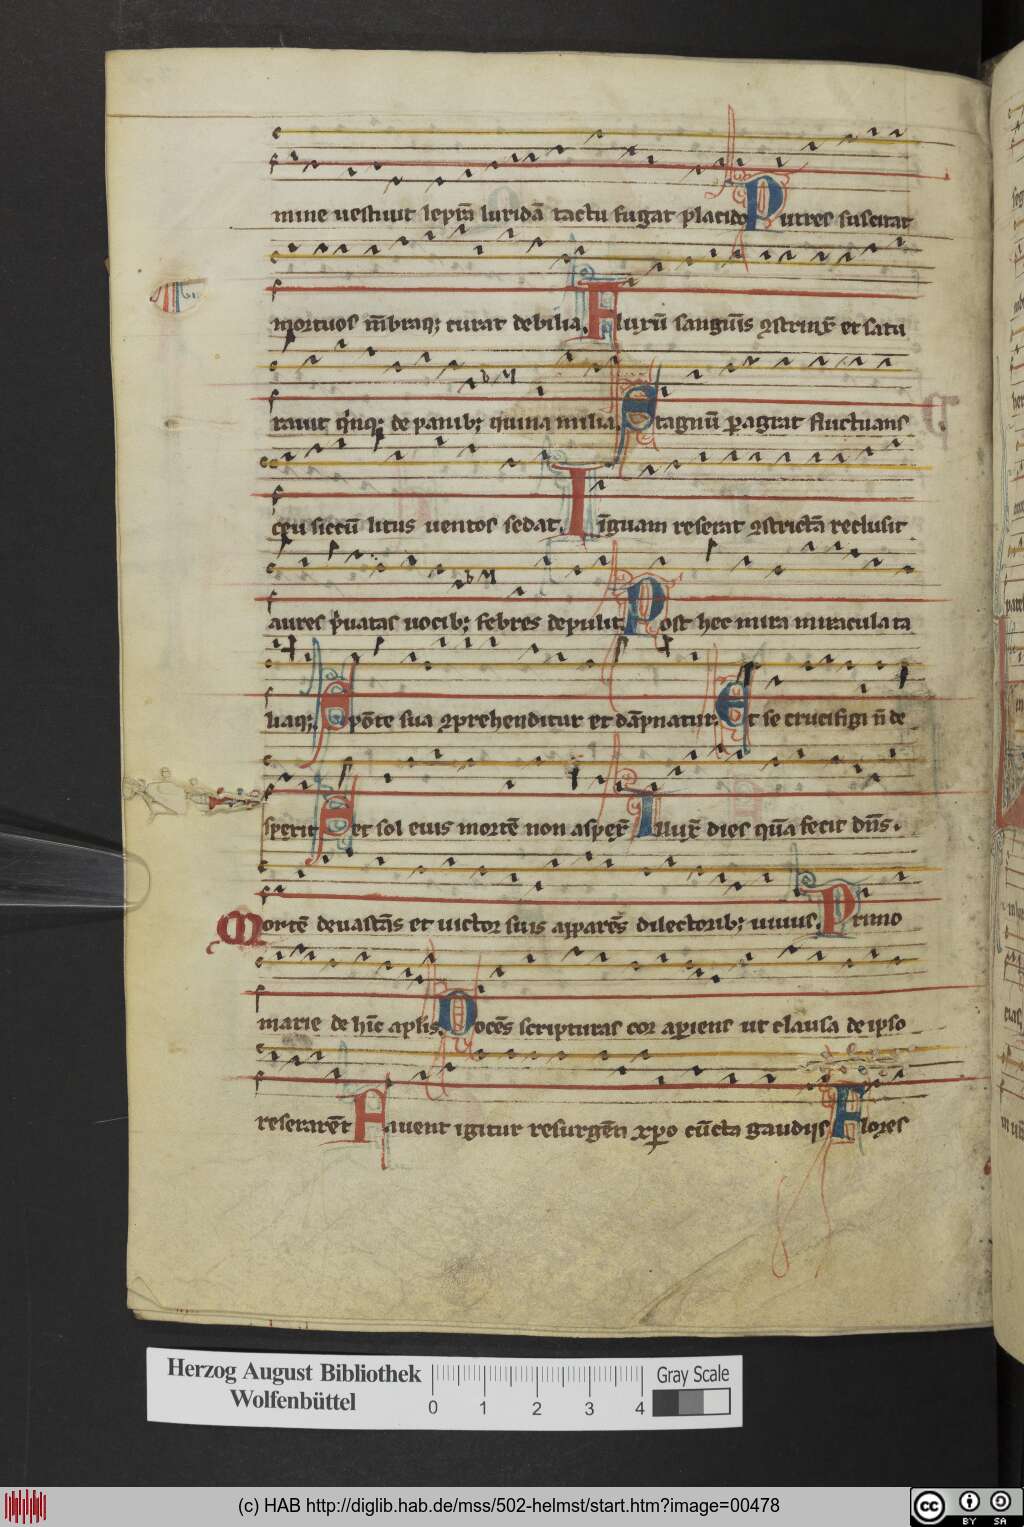 mine uestiuit lepm̄ luridā tactu fugat placido Putres suscitat
mortuos m̄braq; curat debilia. Fluxū sanguīs ꝯstrinx̄ et satu
rauit qi̇nq; de panib; quina milia. Stagnū ꝑagrat fluctuans
ceu siccū litus uentos sedat. Līguam reserat ꝯstrictā reclusit
aures pi̇uatas uocib; febres depulit. Post hec mira miracula ta
liaq;. Spōte sua ꝯprehenditur et dāpnatur. Et se crucifigi n̄ de
spexit Set sol eius mortē non aspex̄. Illux̄ dies quā fecit dn̄s.
Mortē deuastās et uictor suis apparēs dilectorib; uiuus. Primo
marie de hīc aplis. Docēs scripturas cor aꝑiens ut clausa de ipso
reserarēt Fauent igitur resurgēti xpo cūcta gaudijs Flores
Herzog August Bibliothek
Wolfenbüttel
0 1 2 3 4
Gray Scale
(c) HAB http://diglib.hab.de/mss/502-helmst/start.htm?image=00478
cc BY SA